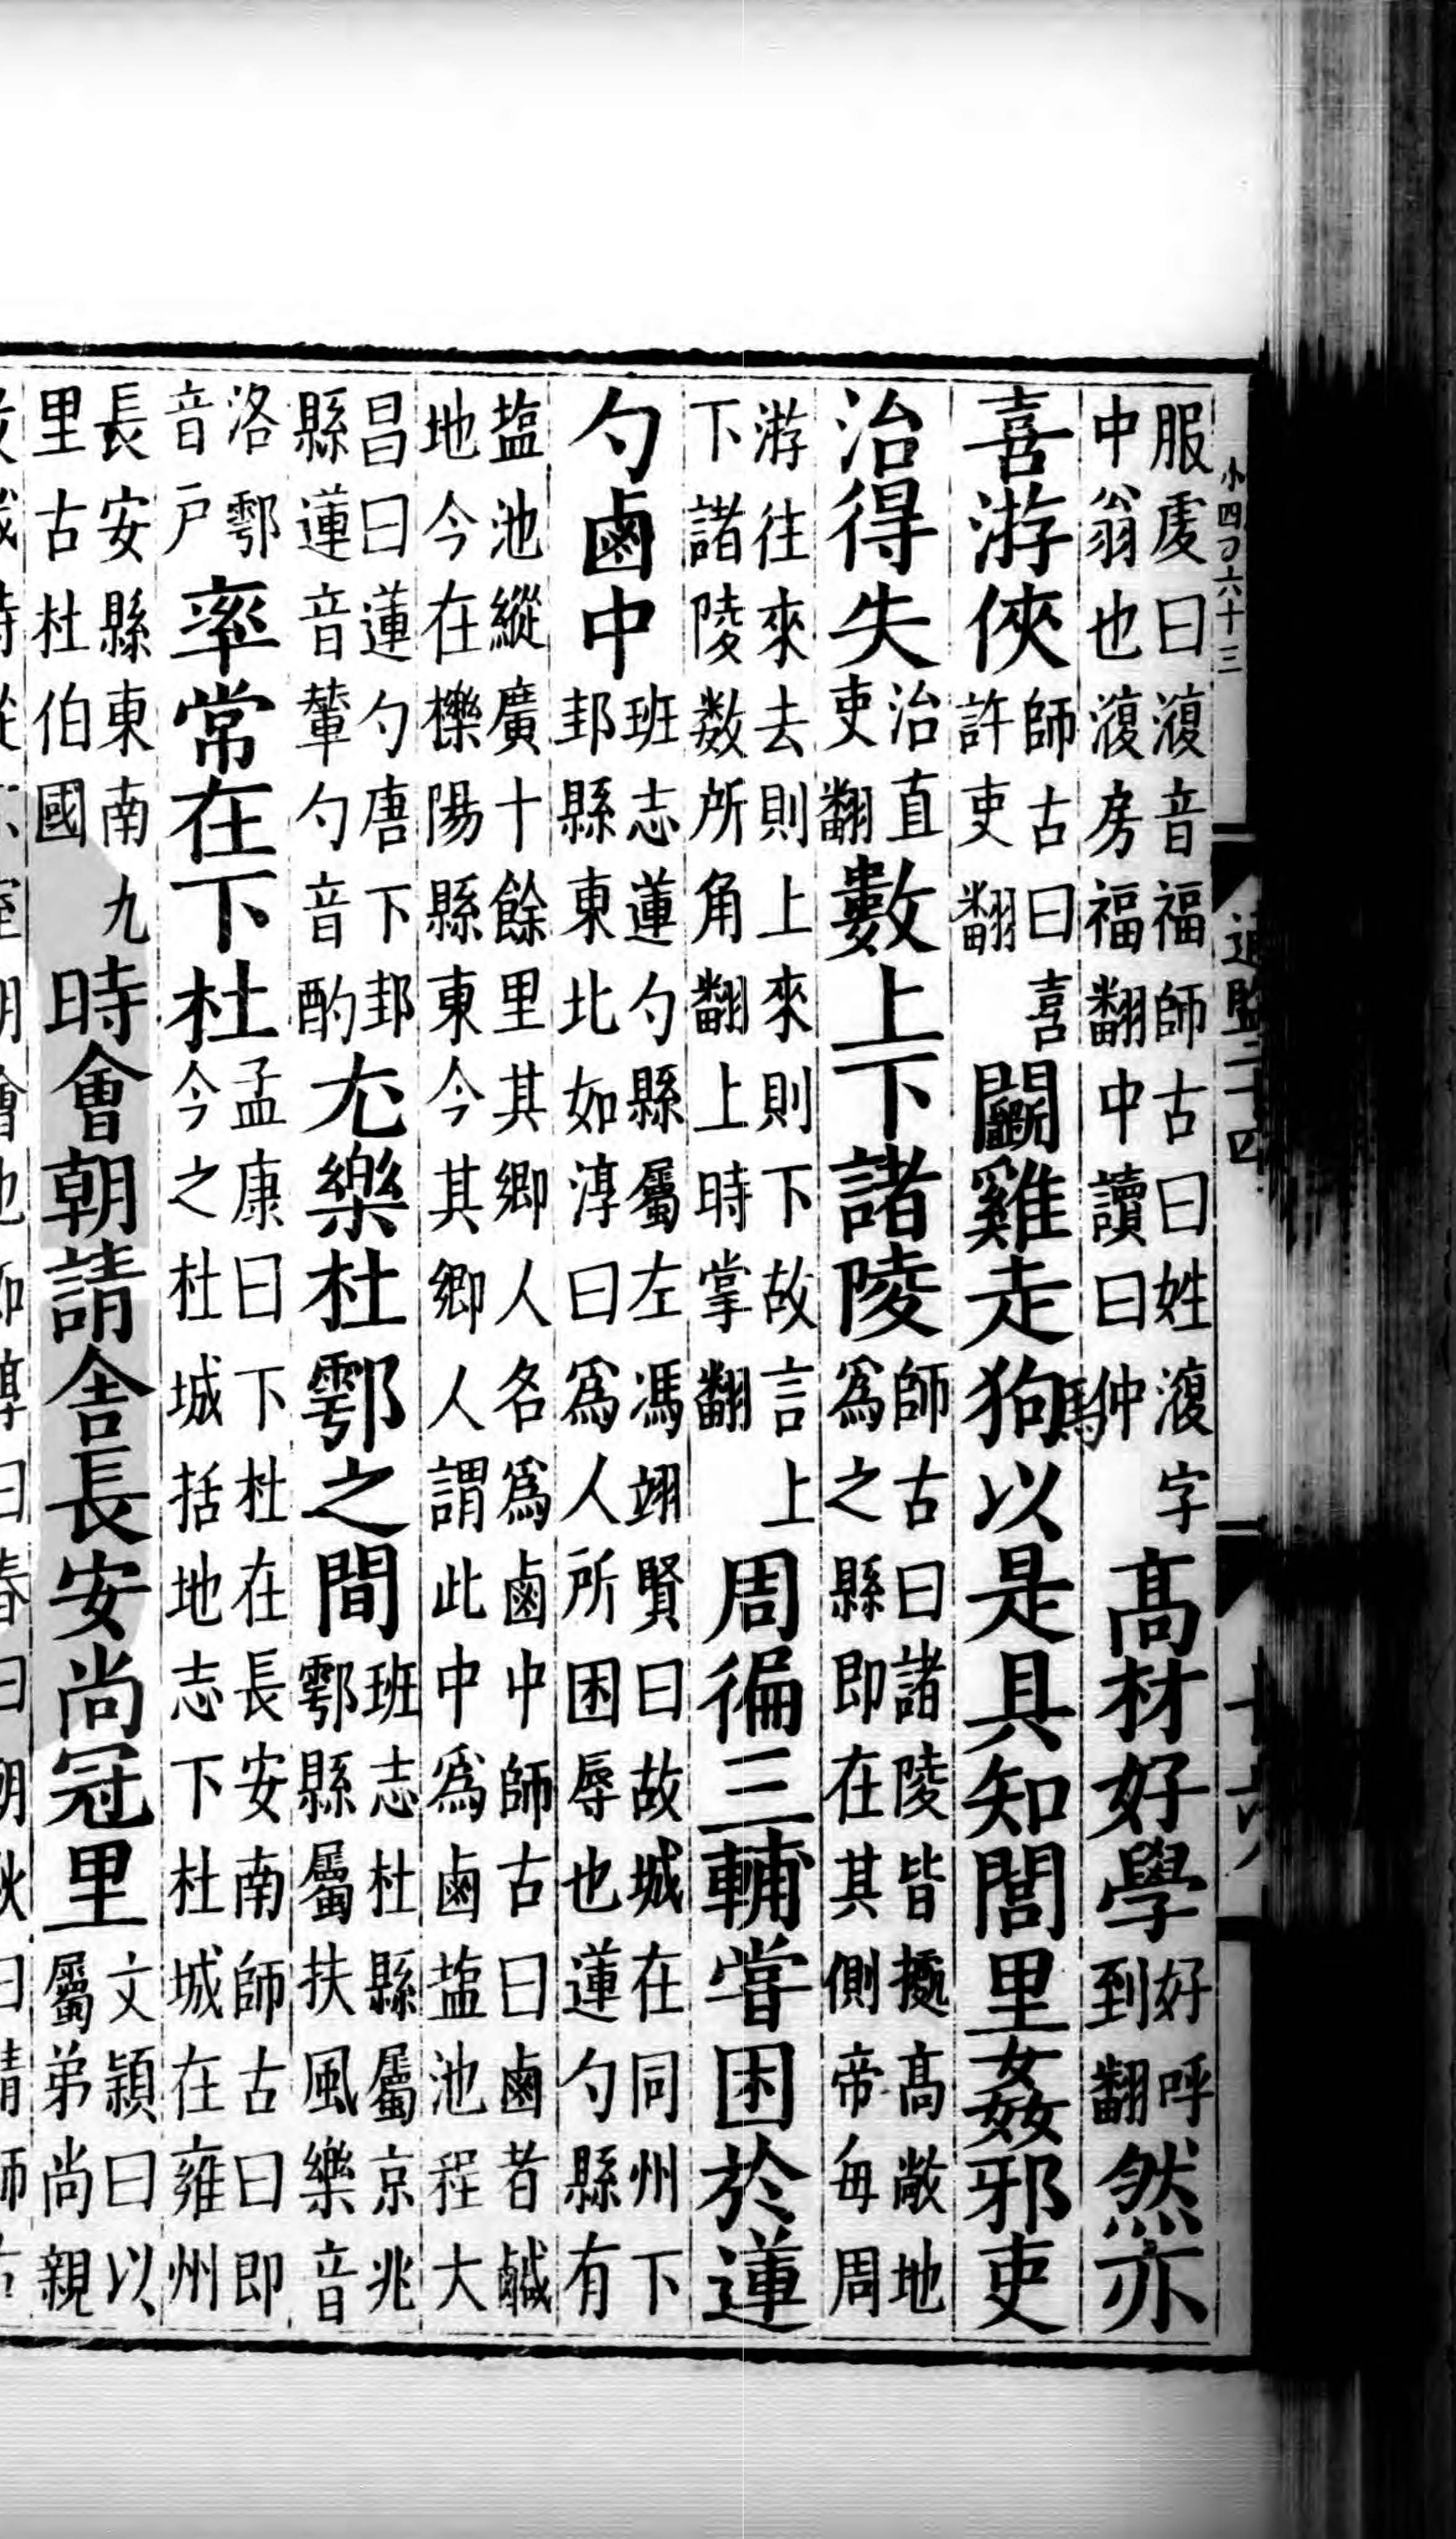 小四百六十三
通鑑二十四
服虔曰澓音福師古曰姓澓字
中翁也澓房福翻中讀曰仲馮
高材好學
好呼
到翻
然亦
喜游俠
師古曰喜
許吏翻
鬬雞走狗以是具知閭里姦邪吏
治得失
治直
吏翻
數上下諸陵
師古曰諸陵皆據高敞地
爲之縣即在其側帝每周
游往來去則上來則下故言上
下諸陵数所角翻上時掌翻
周徧三輔嘗困於蓮
勺鹵中
班志蓮勺縣屬左馮翊賢曰故城在同州下
邽縣東北如淳曰爲人所困辱也蓮勺縣有
塩池縱廣十餘里其鄉人名爲鹵中師古曰鹵者鹹
地今在櫟陽縣東今其鄉人謂此中爲鹵塩池程大
昌曰蓮勺唐下邽
縣蓮音輦勺音酌
尤樂杜鄠之間
班志杜縣屬京兆
鄠縣屬扶風樂音
洛鄠
音戶
率常在下杜
孟康曰下杜在長安南師古曰即
今之杜城括地志下杜城在雍州
長安縣東南九
里古杜伯國
時會朝請舍長安尚冠里
文穎曰以
屬弟尚親